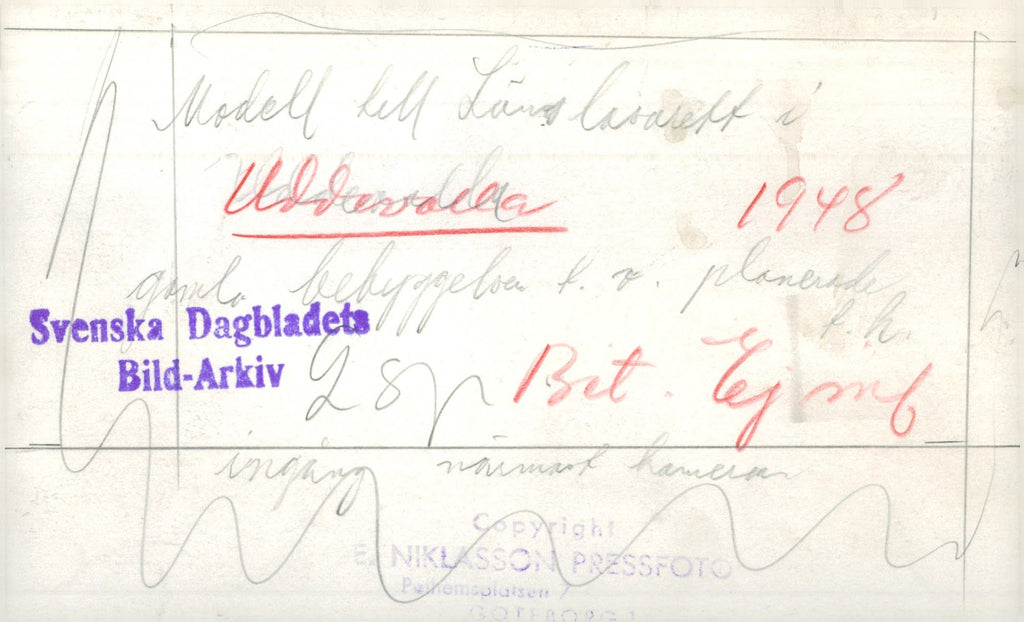 Modell till Länslasarett i
Uddevalla 1948
gamla bebyggelsen t.v. planerade
t.h.
Svenska Dagbladets
Bild-Arkiv
2 sp Bet. Ej inf
ingång närmast kameran
Copyright
E. NIKLASSON PRESSFOTO
GÖTEBORG 1